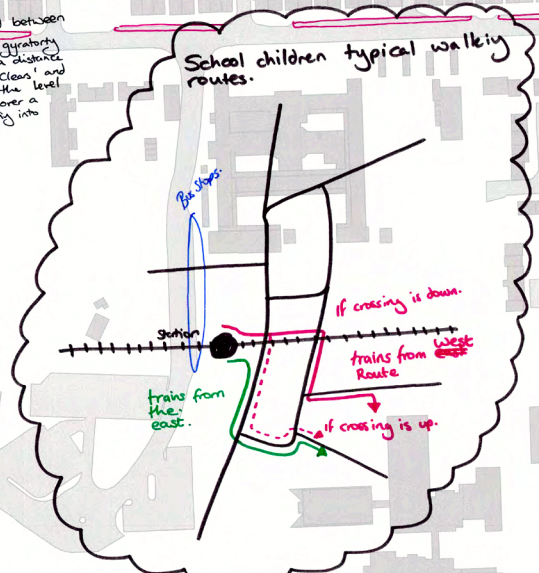 between
gyratorty
a distance
Cleas' and
the level
over a
into
School children typical walkiy
routes.
Bus stops.
If crossing is down.
Station
trains from west
east
Route
trains from
the
east.
if crossing is up.